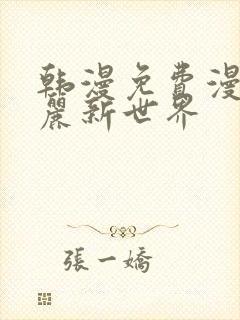 韩漫免費漫
麗新世界
張一嬌